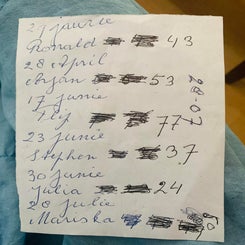 29 januarie
Ronald 43
28 April
Aryan 53
17 junie
Flip 77
23 junie
Stephen 37
30 junie
Julia 24
28 julie
Mariska 50
28-07